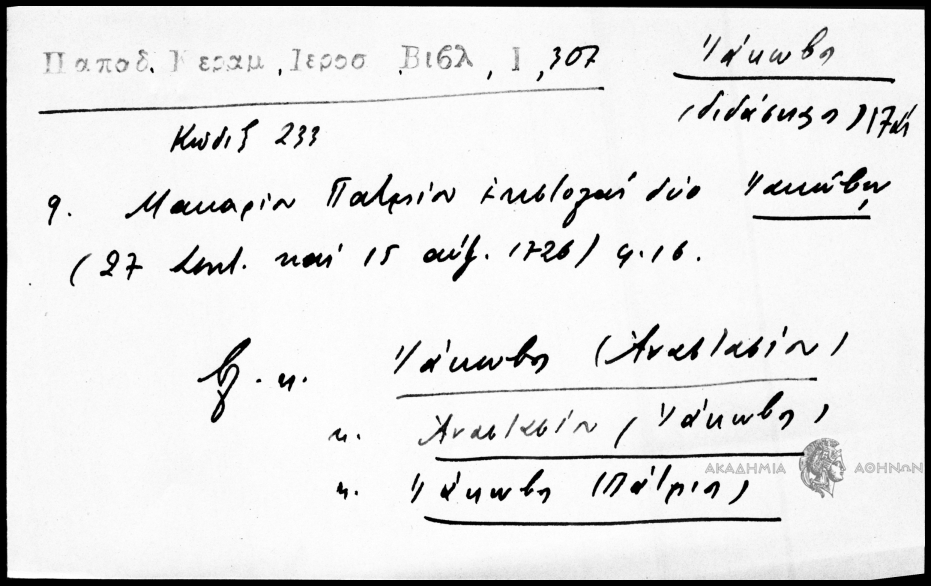 Παπαδ. Κεραμ., Ιεροσ. Βιβλ., Ι, 307
Ἰάκωβος
(διδάσκαλος)
Κώδιξ 233
9. Μακαρίου Πατμίου ἐπιστολαὶ δύο Ἰακώβῳ
(27 Σεπτ. καὶ 15 αὐγ. 1726) φ. 16.
βλ. κ. Ἰάκωβος (Ἀναστασίου)
κ. Ἀναστασίου, Ἰάκωβος
κ. Ἰάκωβος (Πάτμιος)
ΑΚΑΔΗΜΙΑ ΑΘΗΝΩΝ